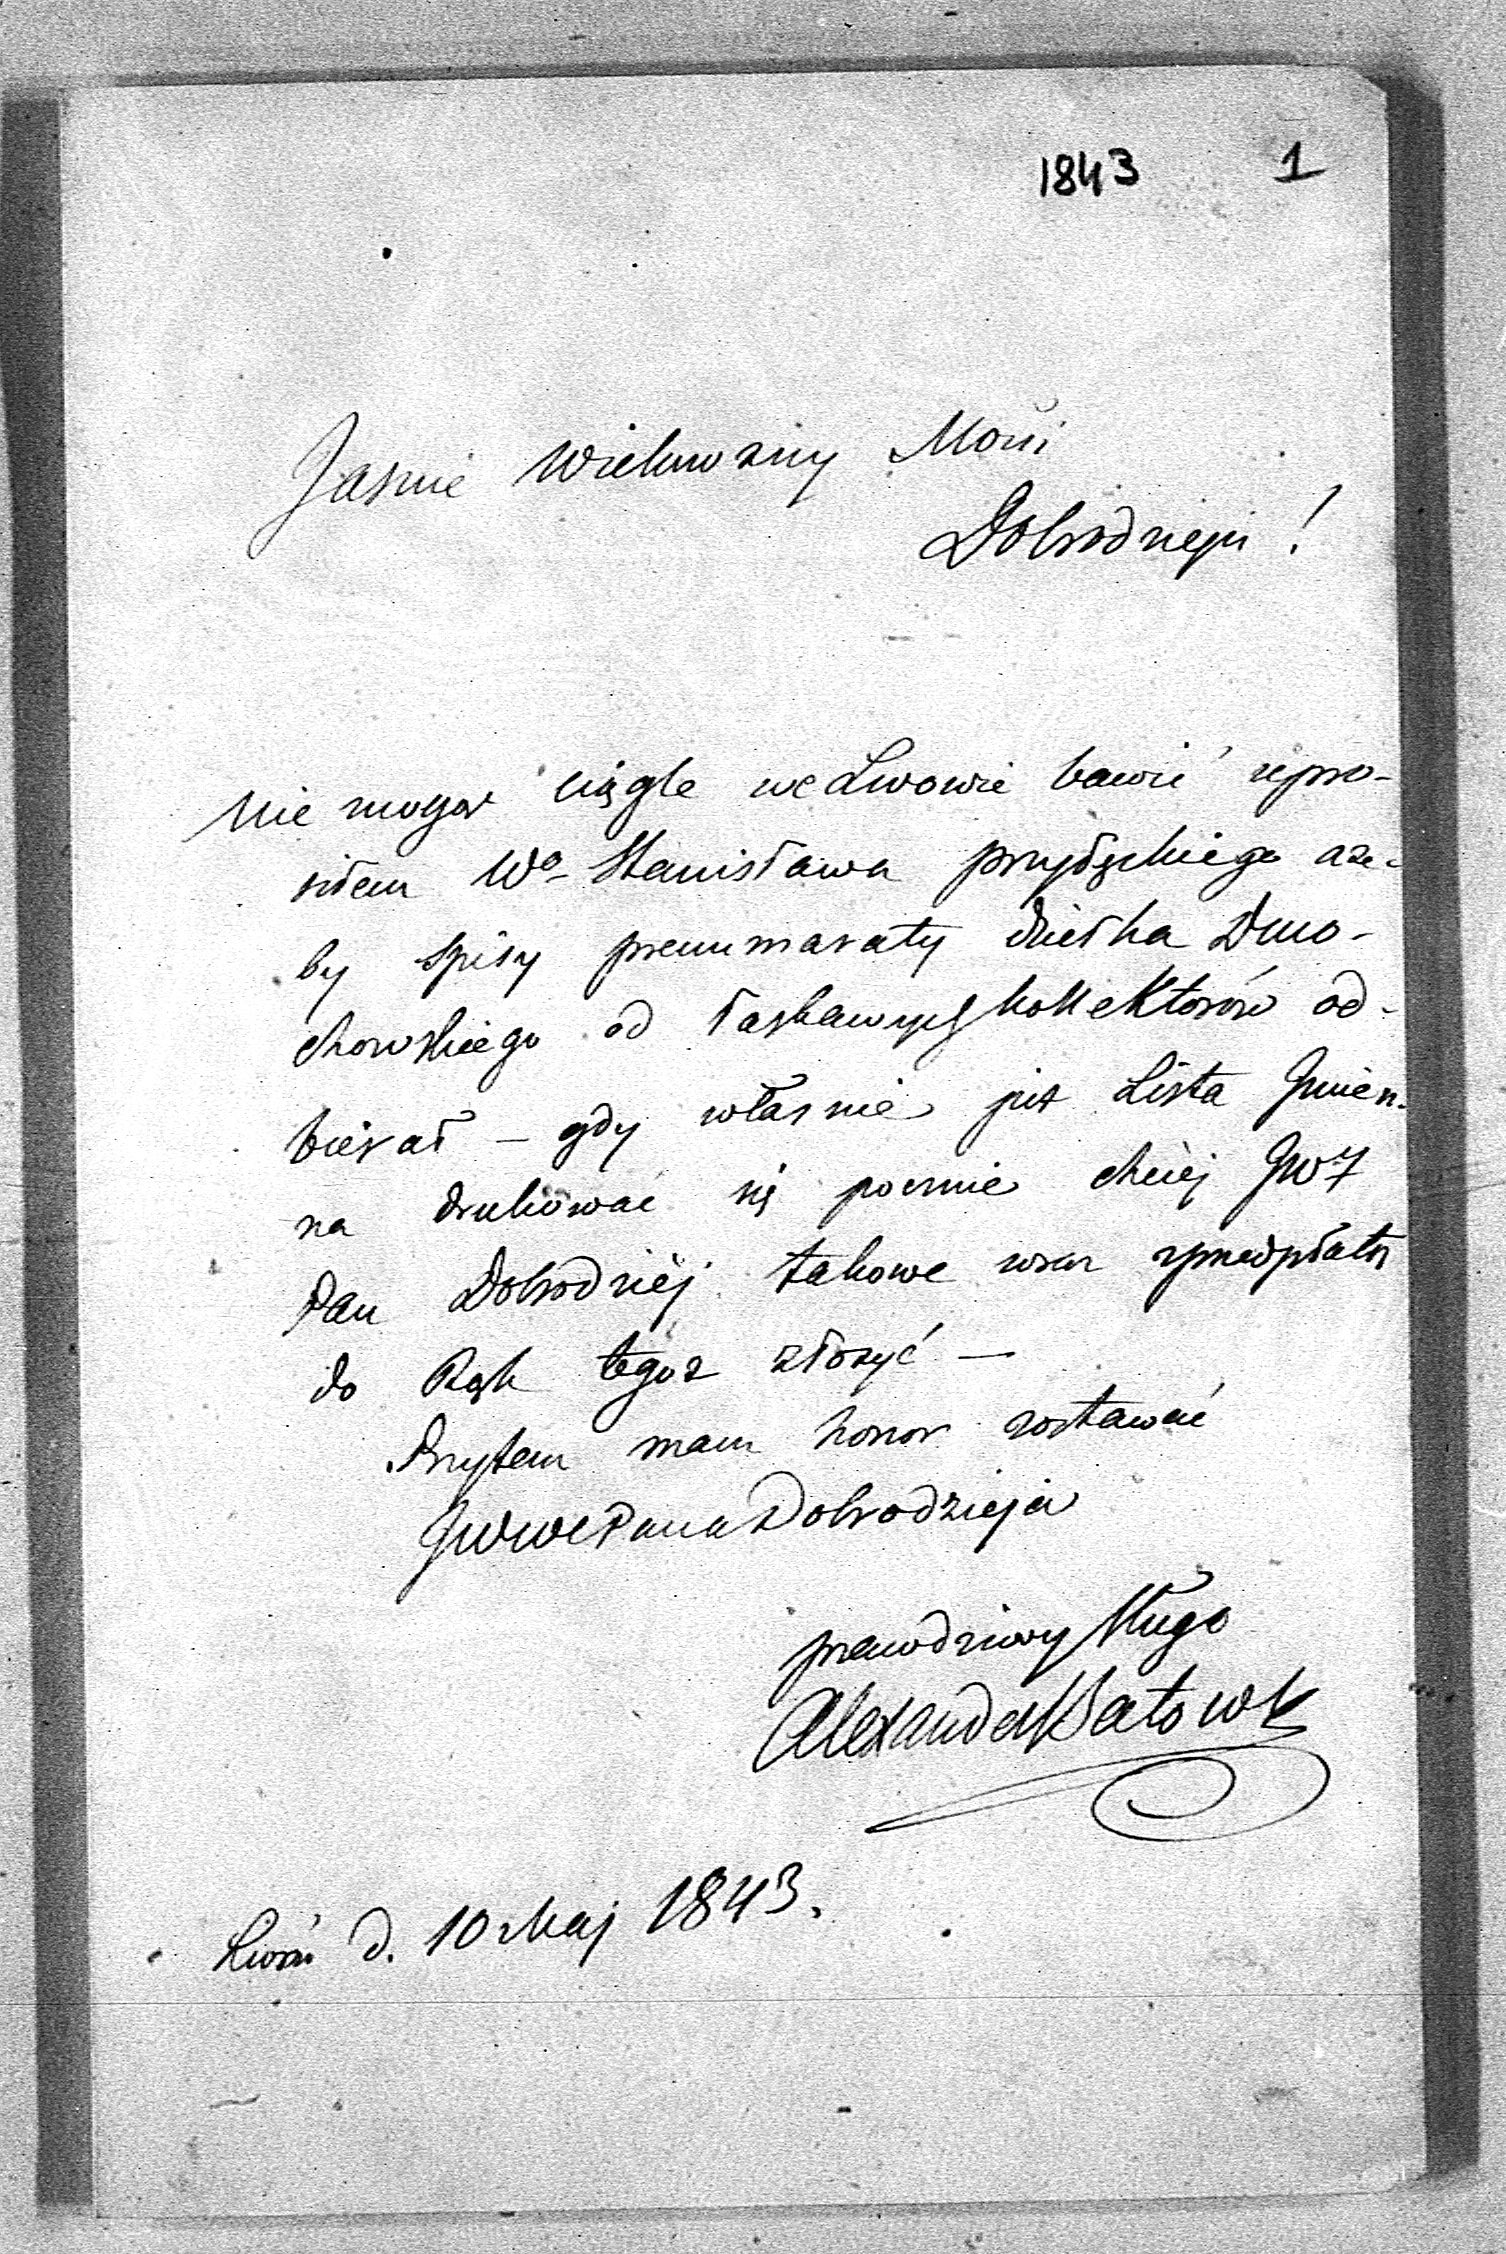 1843 1
Jaśnie Wielmożny Mości
Dobrodzieju!
Nie mogąc ciągle we Lwowie bawić upro-
siłem Wo Stanisława Przyłęckiego aże-
by spisy prenumaraty dziełka Dmo-
chowskiego od łaskawych kollektorów od-
bierał – gdy własnie już Lista Imien-
na drukować się pocznie chciej JW
Pan Dobrodziej takowe wraz z przedpłatą
do Rąk tegoż złożyć –
Przytem mam honor zostawać
JWWc Pana Dobrodzieja
prawdziwy sługa
Alexander Batowsk
Lwów d. 10 Maj 1843.